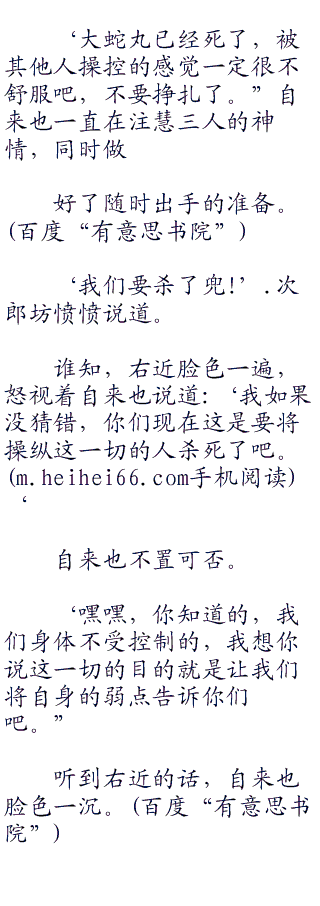 ‘大蛇丸已经死了，被
其他人操控的感觉一定很不
舒服吧，不要挣扎了。”自
来也一直在注慧三人的神
情，同时做
好了随时出手的准备。
(百度“有意思书院”)
‘我们要杀了兜!’.次
郎坊愤愤说道。
谁知，右近脸色一遍，
怒视着自来也说道:‘我如果
没猜错，你们现在这是要将
操纵这一切的人杀死了吧。
(m.heihei66.com手机阅读)
‘
自来也不置可否。
‘嘿嘿，你知道的，我
们身体不受控制的，我想你
说这一切的目的就是让我们
将自身的弱点告诉你们
吧。”
听到右近的话，自来也
脸色一沉。(百度“有意思书
院”)